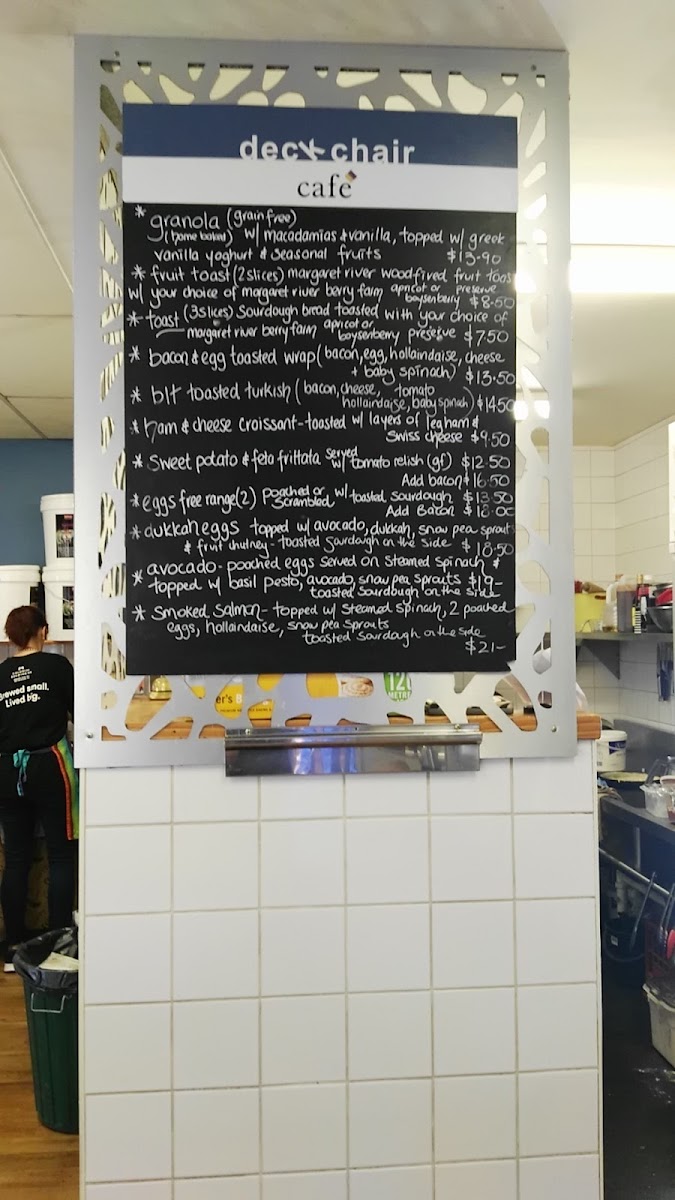 deckchair
cafe
* granola (grain free)
(home baked) w/ macadamias & vanilla, topped w/ greek
vanilla yoghurt & seasonal fruits $13-90
* fruit toast (2 slices) margaret river woodfired fruit toast
w/ your choice of margaret river berry farm apricot or boysenberry preserve $8-50
* toast (3 slices) Sourdough bread toasted with your choice of
margaret river berry farm apricot or boysenberry preserve $7-50
* bacon & egg toasted wrap (bacon, egg, hollaindaise, cheese
+ baby spinach) $13-50
* blt toasted turkish (bacon, cheese, tomato
hollaindaise, baby spinach) $14-50
* ham & cheese croissant - toasted w/ layers of legham &
Swiss cheese $9.50
* Sweet potato & feta frittata served w/ tomato relish (gf) $12-50
Add bacon 16-50
* eggs free range (2) poached or scrambled w/ toasted sourdough $13-50
Add Bacon $18-00
* dukkah eggs topped w/ avocado, dukkah, snow pea sprouts
& fruit chutney - toasted Sourdough on the side $18-50
* avocado - poached eggs served on Steamed Spinach &
topped w/ basil pesto, avocado, snow pea sprouts $19-
toasted Sourdough on the side
* Smoked Salmon - topped w/ Steamed Spinach, 2 poached
eggs, hollaindaise, snow pea sprouts
toasted Sourdough on the side
$21-
Brewed small.
Lived big.
er's B
120
METRE